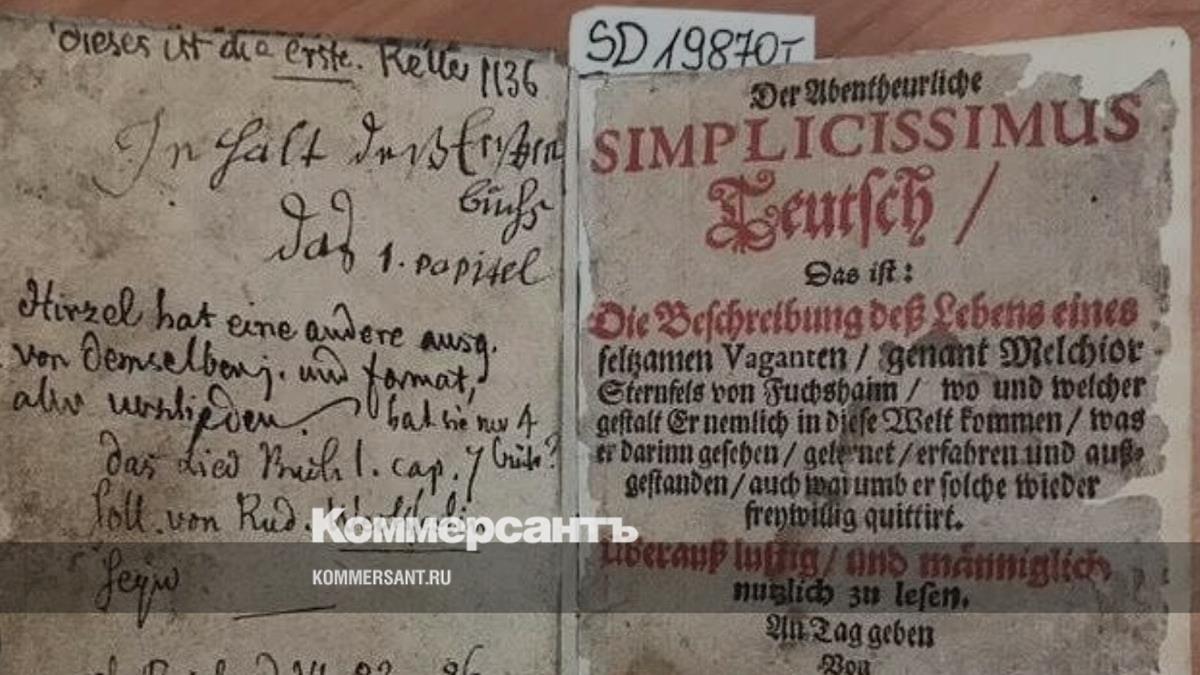 dieses ist die erste. Keller 1136
In halt deß Ersten
buchs
das 1. capitel
Hirzel hat eine andere ausg.
von demselben j. und format,
aber verschieden. hat sie nur 4
das Lied Buch 1. cap. 7
soll von Rud.
seyn.
SD 19870T
Der Abentheurliche
SIMPLICISSIMUS
Teutsch /
Das ist:
Die Beschreibung deß Lebens eines
seltzamen Vaganten / genant Melchior
Sternfels von Fuchshaim / wo und welcher
gestalt Er nemlich in diese Welt kommen / was
er darinn gesehen / gelernet / erfahren und auß-
gestanden / auch warumb er solche wieder
freywillig quittirt.
Überauß lustig / und männiglich
nutzlich zu lesen.
An Tag geben
Von
Коммерсантъ
KOMMERSANT.RU